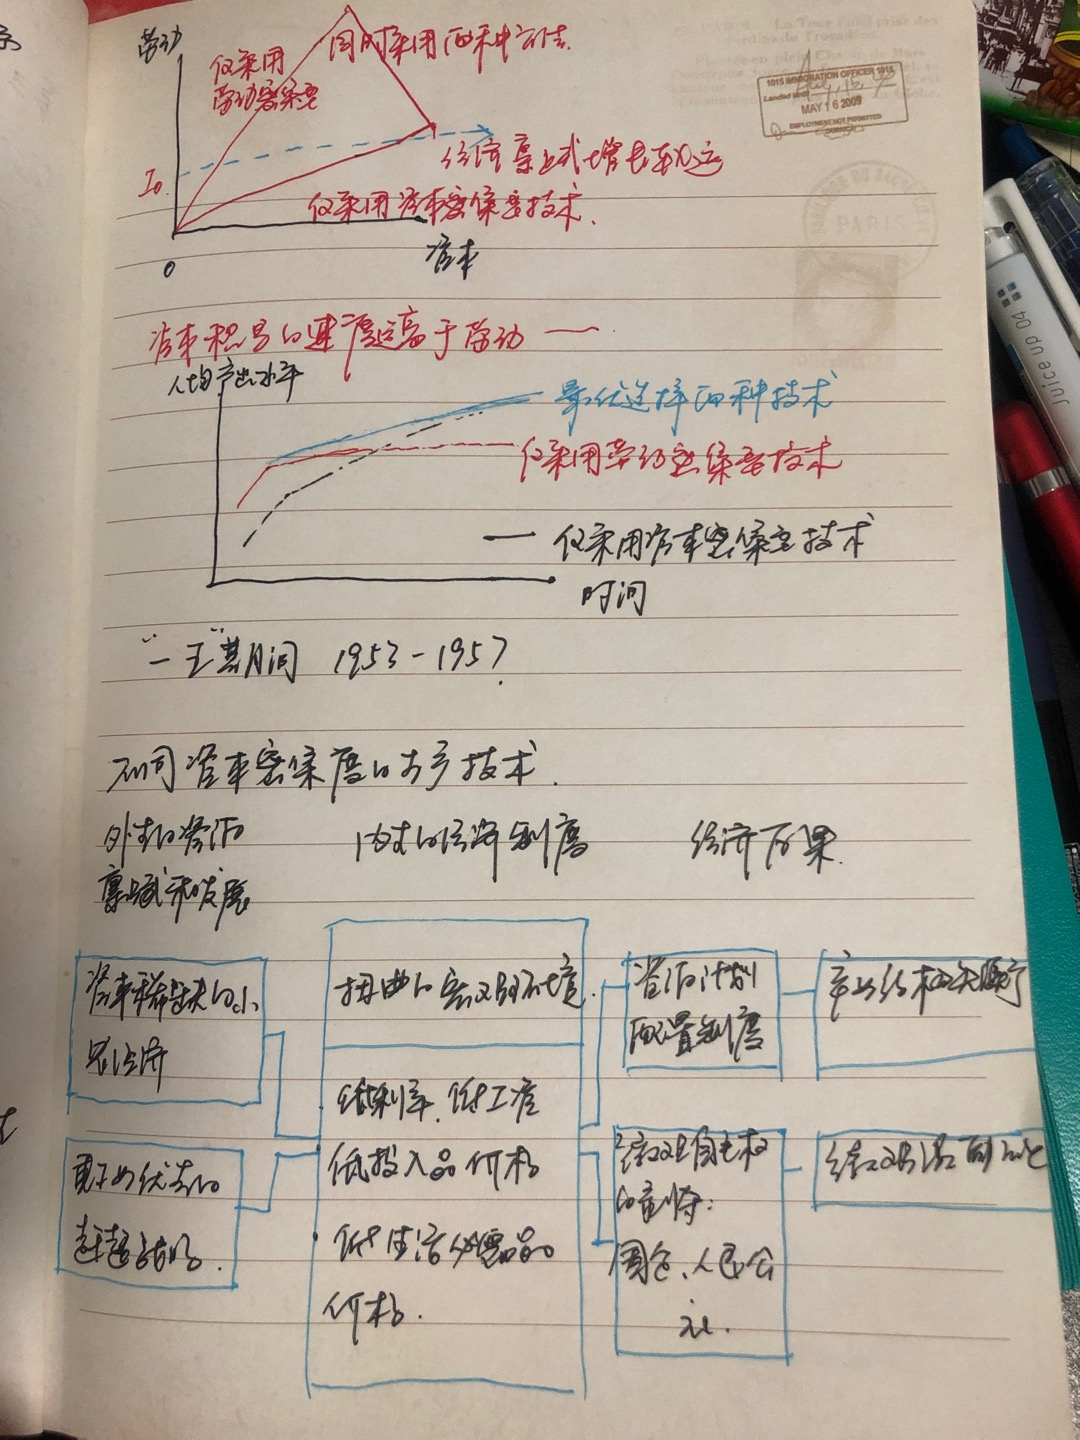 劳动
仅采用
劳动密集型
同时采用两种方法.
仅采用资本密集型技术.
资本
0
资本积累的速度远高于劳动
人均产出水平
最优选择两种技术
仅采用劳动密集型技术
仅采用资本密集型技术
时间
"一五"期间 1953-1957
不同资本密集度的生产技术.
外生的资源
禀赋和发展
内生的经济制度
经济后果.
资本稀缺的小
农经济
重工业优先的
赶超战略.
扭曲的宏观环境.
低利率、低工资
低投入品价格
低生活必需品
价格.
资源计划
配置制度
产业结构失调
经营自主权
的剥夺:
国企、人民公
社.
1015 IMMIGRATION OFFICER 1015
MAY 16 2009
EMPLOYMENT NOT PERMITTED
JAMAICA
PARIS
La Tour Eiffel prise des
Juice up 04